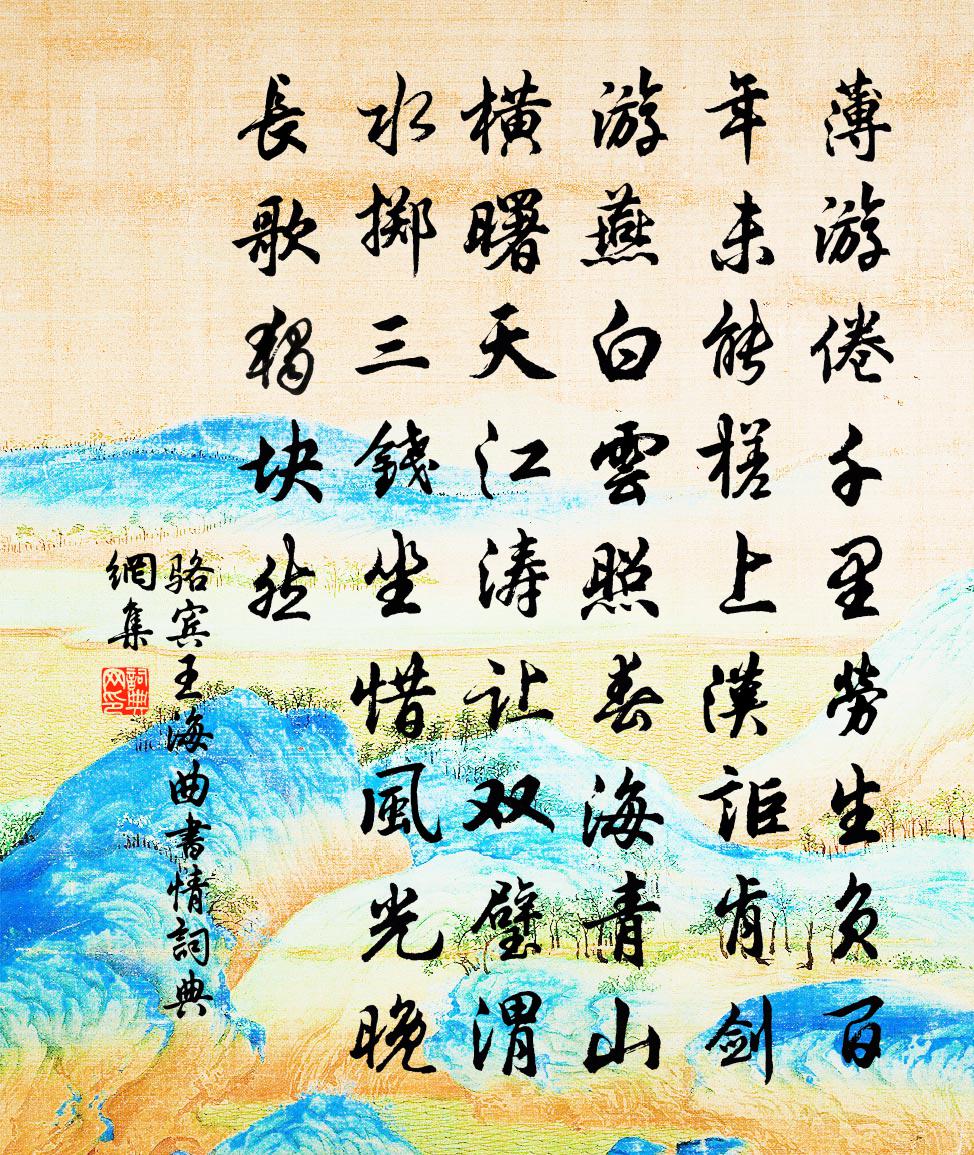 薄游倦千里劳生负百
年未能槎上漢詎肯剑
游燕白雲照春海青山
横曙天江涛让双璧渭
水掷三錢坐惜風光晚
長歌独块然
骆宾王海曲書情詞典
網集
詞典
网印